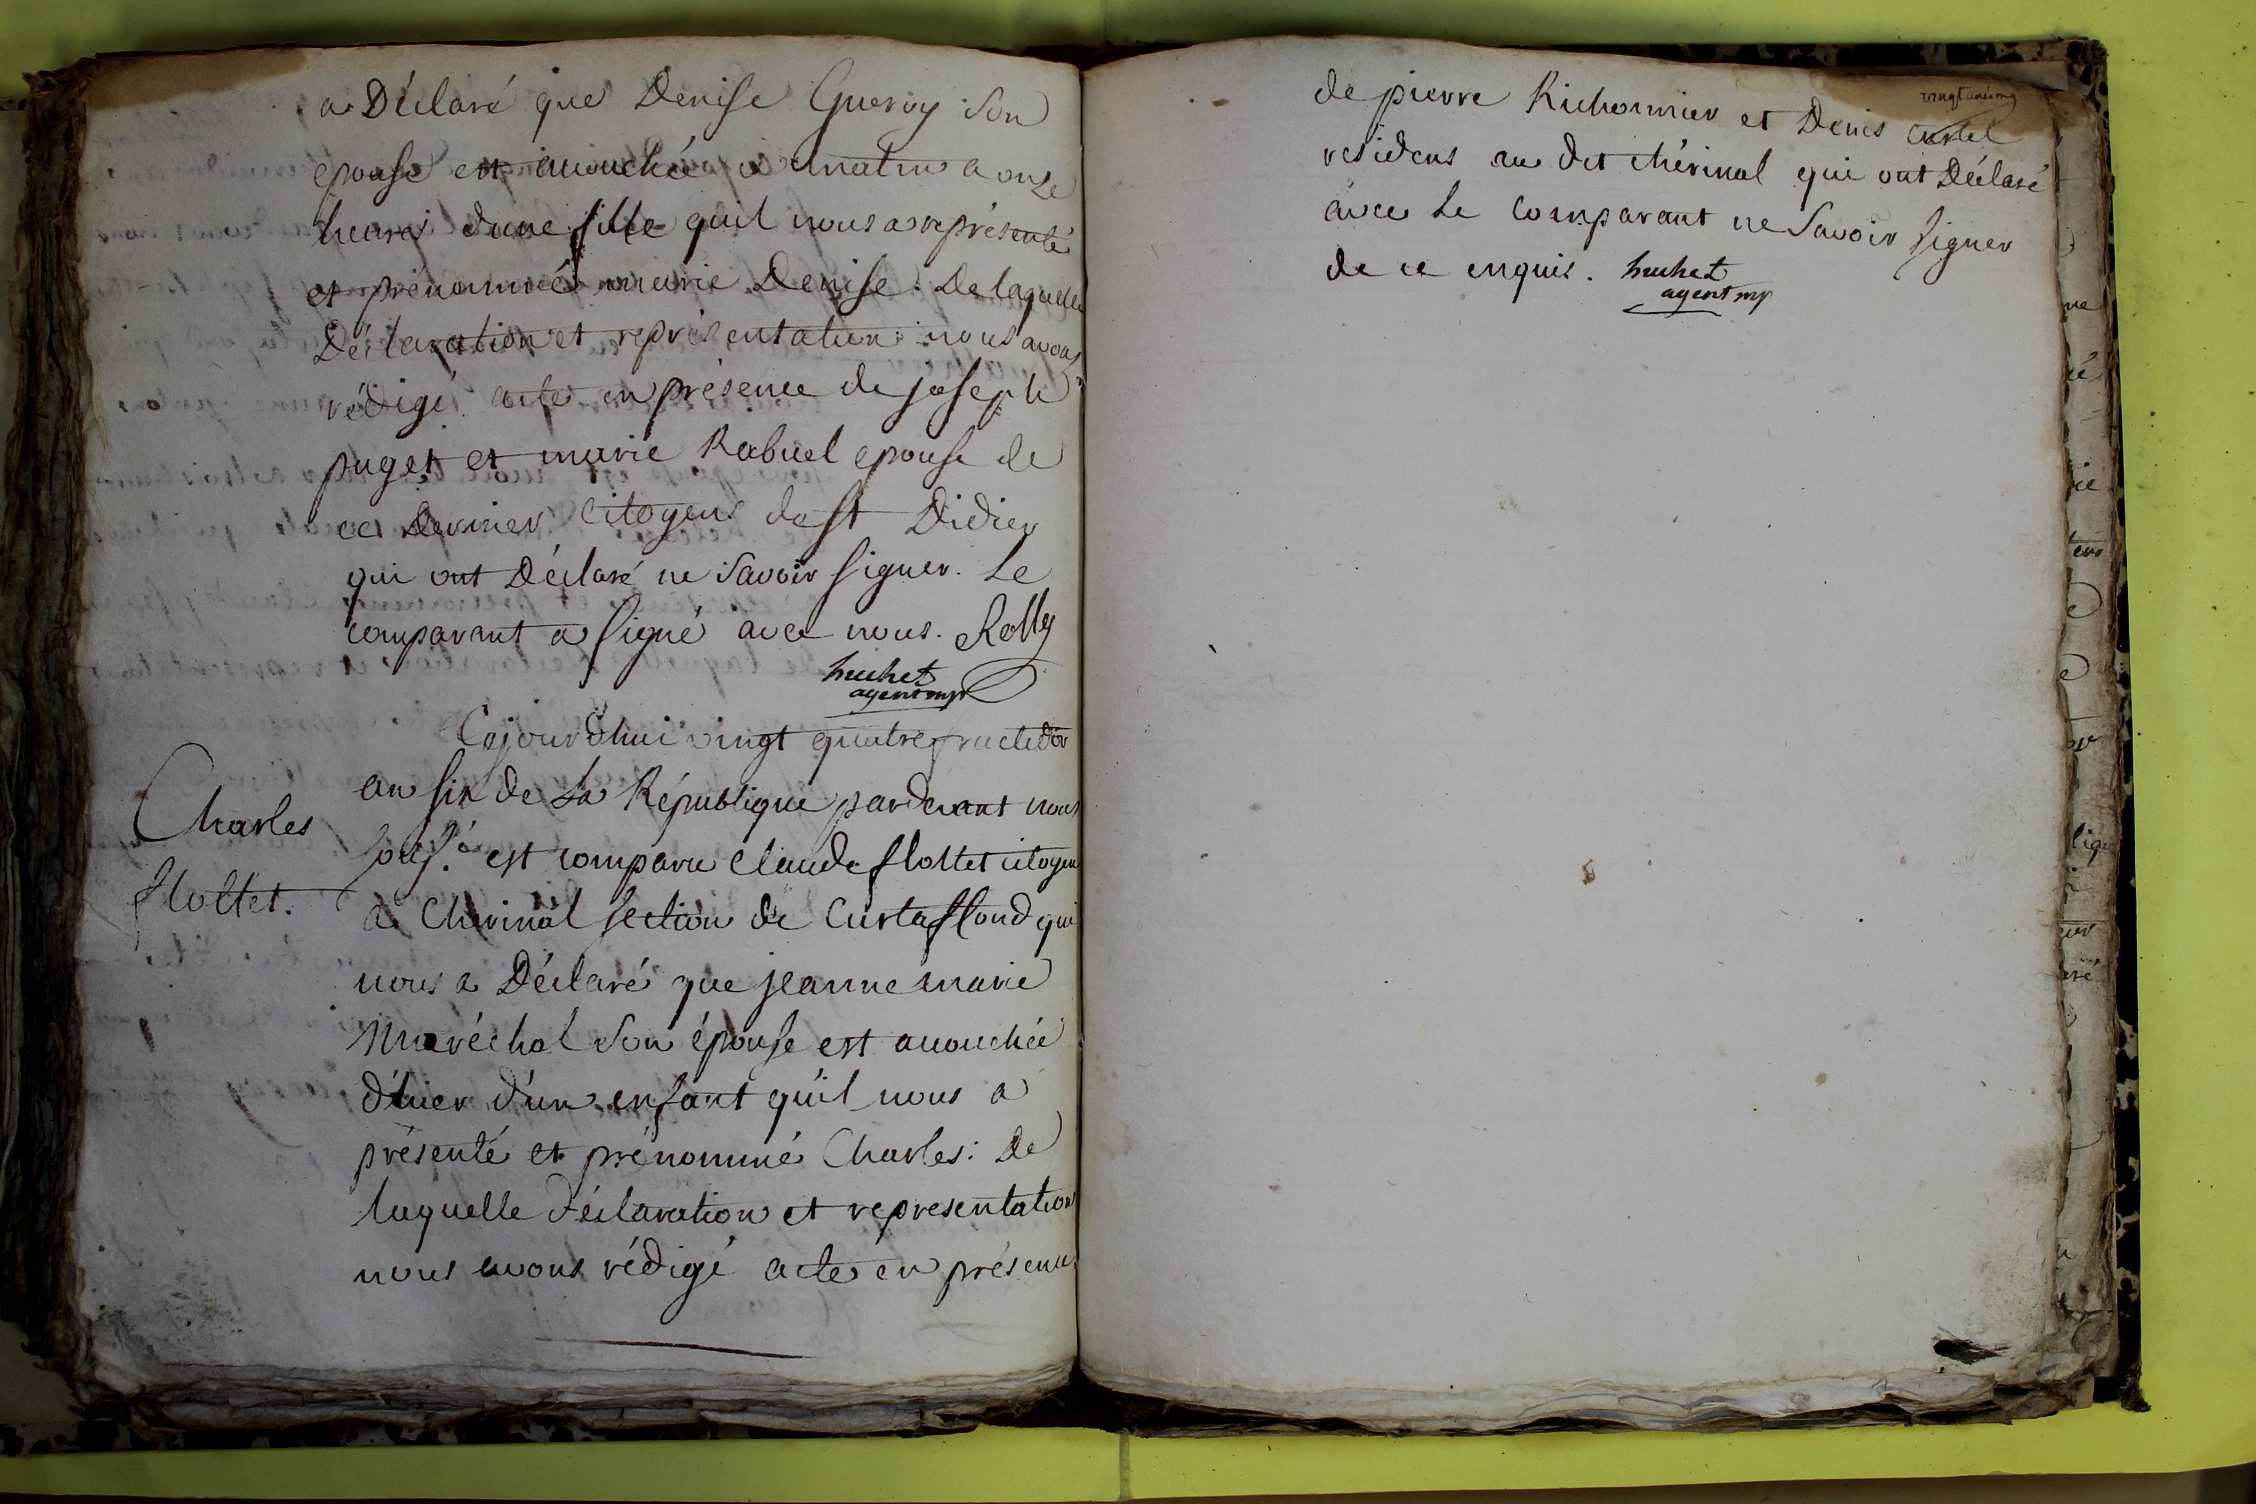 a Déclaré que Denise Gueroy son
epouse est accouchée ce matin a onze
heures dune fille quil nous a représenté
et prénommée marie Denise. De laquelle
Déclaration et représentation nous avons
rédigé acte en présence de joseph
puget et marie Rabuel epouse de
ce Dernier citoyens de st Didier
qui ont Déclaré ne savoir signer. Le
comparant a signé avec nous. Rolly
huchet
agent mpl
Cejourdhui vingt quatre fructidor
an six de La République pardevant nous
Charles
flottet.
souss.é est comparu Claude flottet citoyen
a Chérinal section de Curtaffond qui
nous a Déclaré que jeanne marie
Maréchal son épouse est accouchée
d'hier d'un enfant qu'il nous a
présenté et prénommé Charles: De
laquelle déclaration et representation
nous avons rédigé acte en présence
de pierre Richonnier et Denis curtel
residens au dit chérinal qui ont Déclaré
avec le comparant ne savoir signer
de ce enquis. huchet
agent mpl